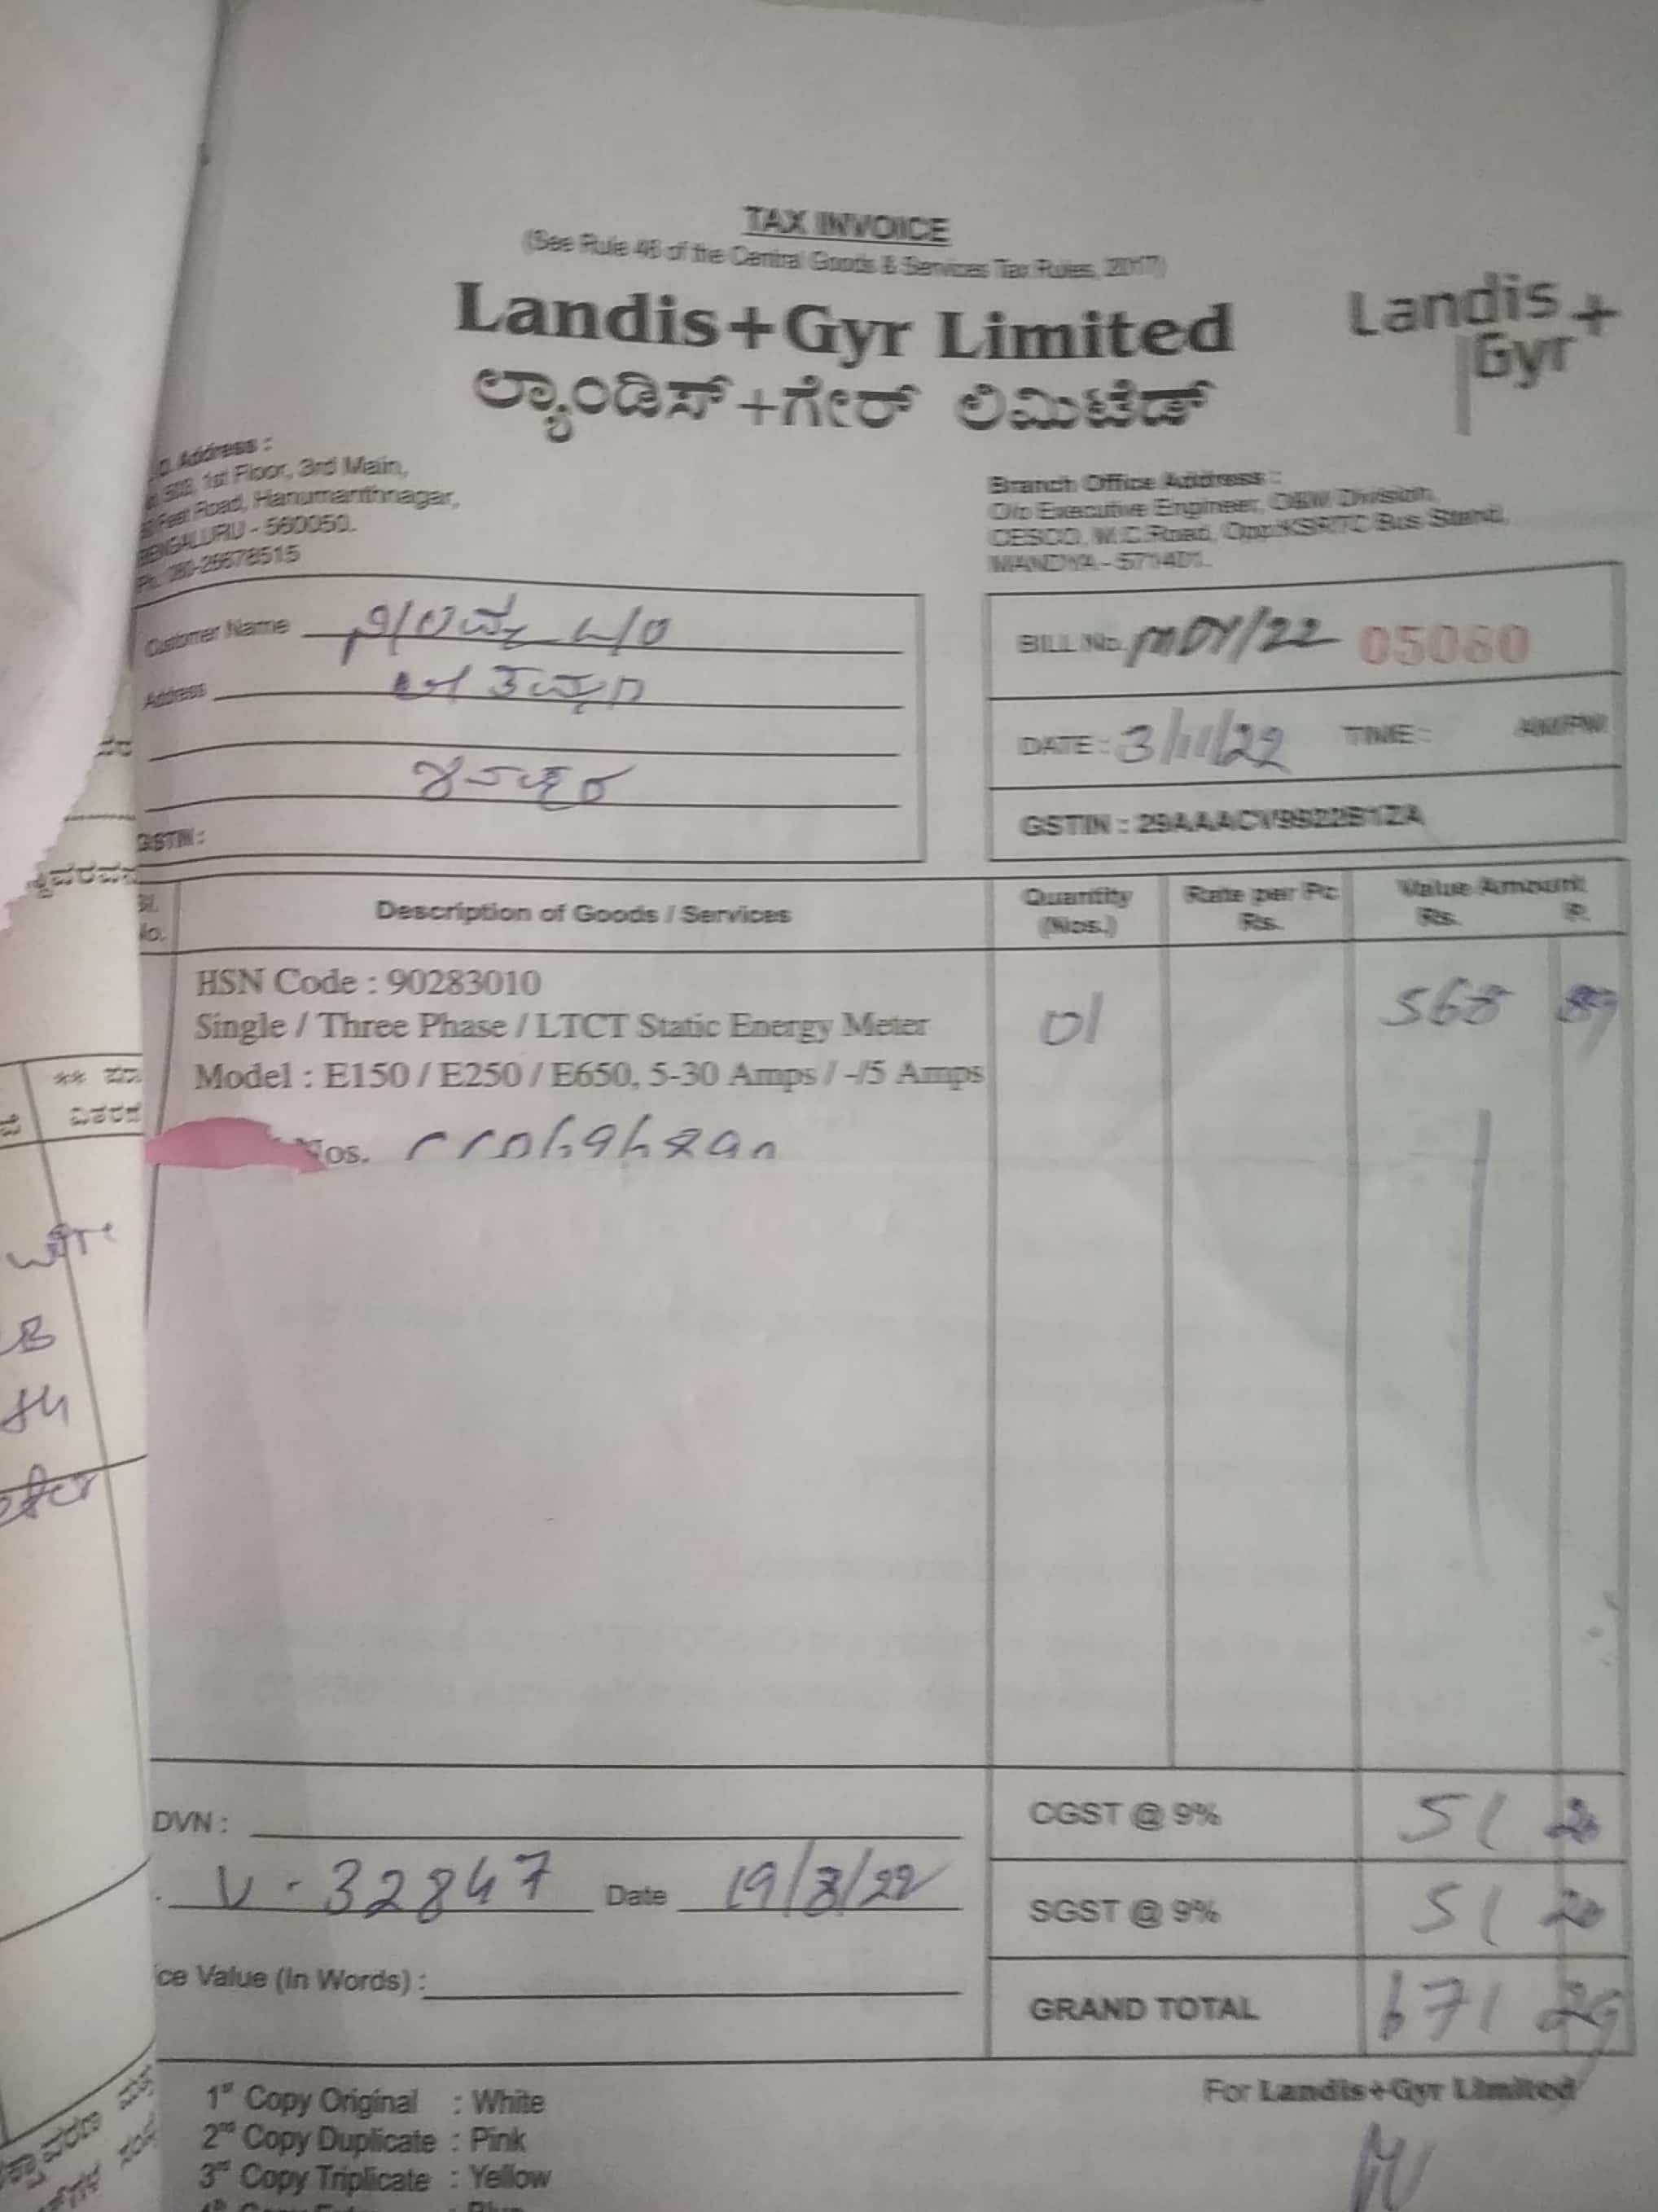 TAX INVOICE
(See Rule 46 of the Central Goods & Services Tax Rules, 2017)
Landis+Gyr Limited
ಲ್ಯಾಂಡಿಸ್+ಗೇರ್ ಲಿಮಿಟೆಡ್
Landis+
Gyr
Address :
1st Floor, 3rd Main,
Feet Road, Hanumanthnagar,
BENGALURU - 560050.
Ph. 080-26678515
Branch Office Address :
O/o Executive Engineer, O&M Division,
CESCO, M.C.Road, Opp.KSRTC Bus Stand,
MANDYA - 571401.
Customer Name
Address
GSTIN :
BILL No. MDY/22 05060
DATE : 3/11/22 TIME : AM/PM
GSTIN : 29AAACV9922B1ZA
Sl. No. Description of Goods / Services Quantity (Nos.) Rate per Pc Rs. Value Amount Rs. P.
HSN Code : 90283010
Single / Three Phase / LTCT Static Energy Meter 01 568 89
Model : E150 / E250 / E650, 5-30 Amps / -/5 Amps
Nos.
DVN :
CGST @ 9% 51 20
V - 32847 Date 19/8/22
SGST @ 9% 51 20
ce Value (In Words) :
GRAND TOTAL 671 29
1st Copy Original : White
2nd Copy Duplicate : Pink
3rd Copy Triplicate : Yellow
For Landis+Gyr Limited